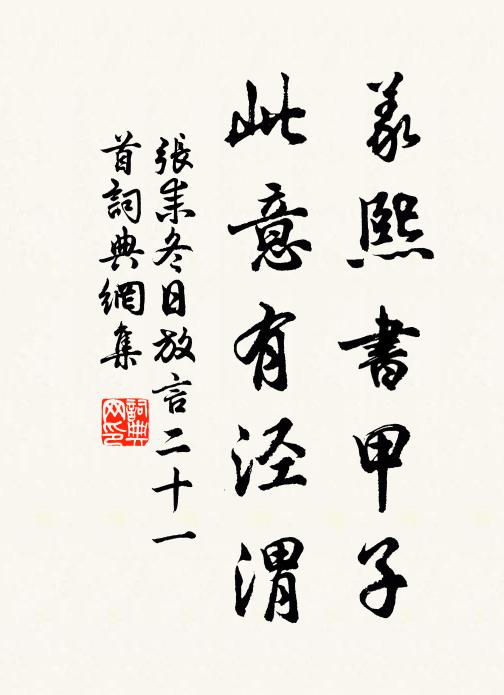 義熙書甲子
此意有泾渭
張耒冬日放言二十一
首詞典網集
詞典网印